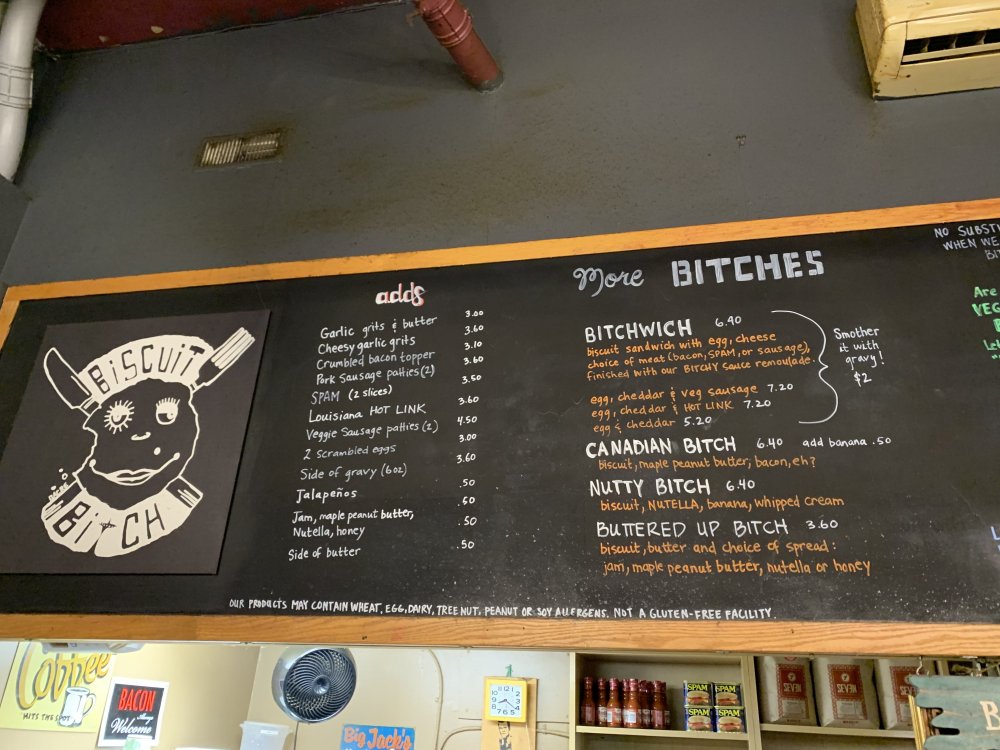 BISCUIT
BACON
BITCH
adds
Garlic grits & butter 3.00
Cheesy garlic grits 3.60
Crumbled bacon topper 3.10
Pork Sausage patties (2) 3.60
SPAM (2 slices) 3.50
Louisiana HOT LINK 3.60
Veggie Sausage patties (2) 4.50
2 scrambled eggs 3.00
Side of gravy (6oz) 3.60
Jalapeños .50
Jam, maple peanut butter, .50
Nutella, honey .50
Side of butter .50
More BITCHES
BITCHWICH 6.40
biscuit sandwich with egg, cheese
choice of meat (bacon, SPAM, or sausage),
finished with our BITCHY sauce remoulade.
egg, cheddar & veg sausage 7.20
egg, cheddar & HOT LINK 7.20
egg & cheddar 5.20
Smother
it with
gravy!
$2
CANADIAN BITCH 6.40 add banana .50
biscuit, maple peanut butter, bacon, eh?
NUTTY BITCH 6.40
biscuit, NUTELLA, banana, whipped cream
BUTTERED UP BITCH 3.60
biscuit, butter and choice of spread:
jam, maple peanut butter, nutella or honey
NO
WHEN
Are
OUR PRODUCTS MAY CONTAIN WHEAT, EGG, DAIRY, TREE NUT, PEANUT OR SOY ALLERGENS. NOT A GLUTEN-FREE FACILITY.
Coffee
HITS THE SPOT
BACON
Always
Welcome
Big Jack's
SPAM SPAM
SPAM SPAM
SEVEN SEVEN